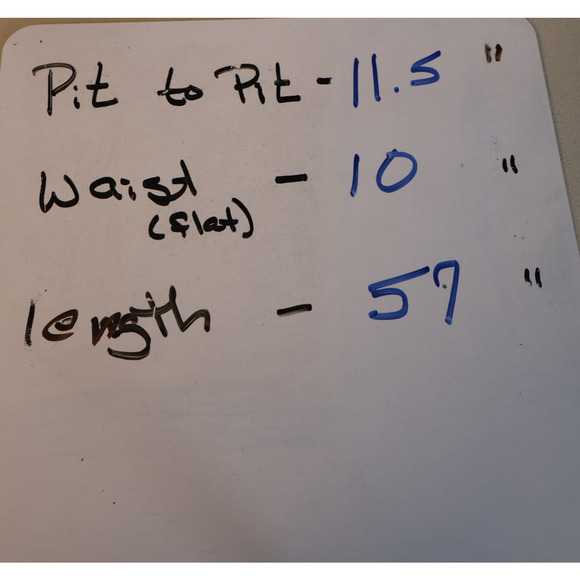 Pit to Pit - 11.5 "
Waist - 10 "
(flat)
length - 57 "